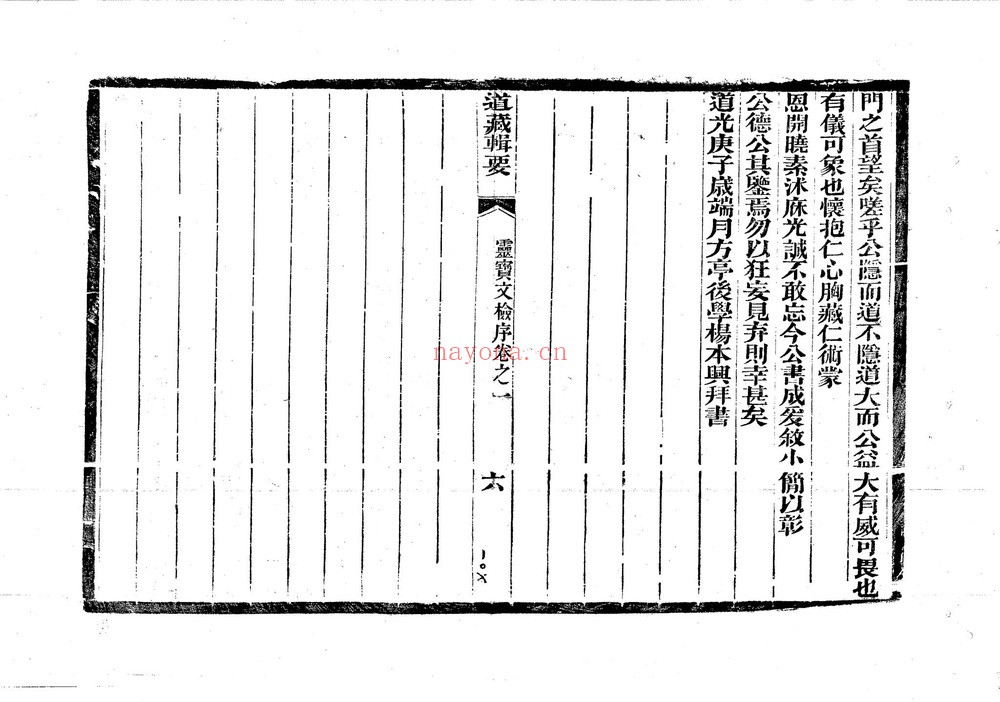 門之首望矣嗟乎公隱而道不隱道大而公益大有威可畏也
有儀可象也懷抱仁心胸藏仁術蒙
恩開曉素沐庥光誠不敢忘今公書成爰敘小簡以彰
公德公其鑒焉勿以狂妄見弃則幸甚矣
道光庚子歲端月方亭後學楊本興拜書
道藏輯要
靈寶文檢序卷之一
六
一〇六
nayona.cn